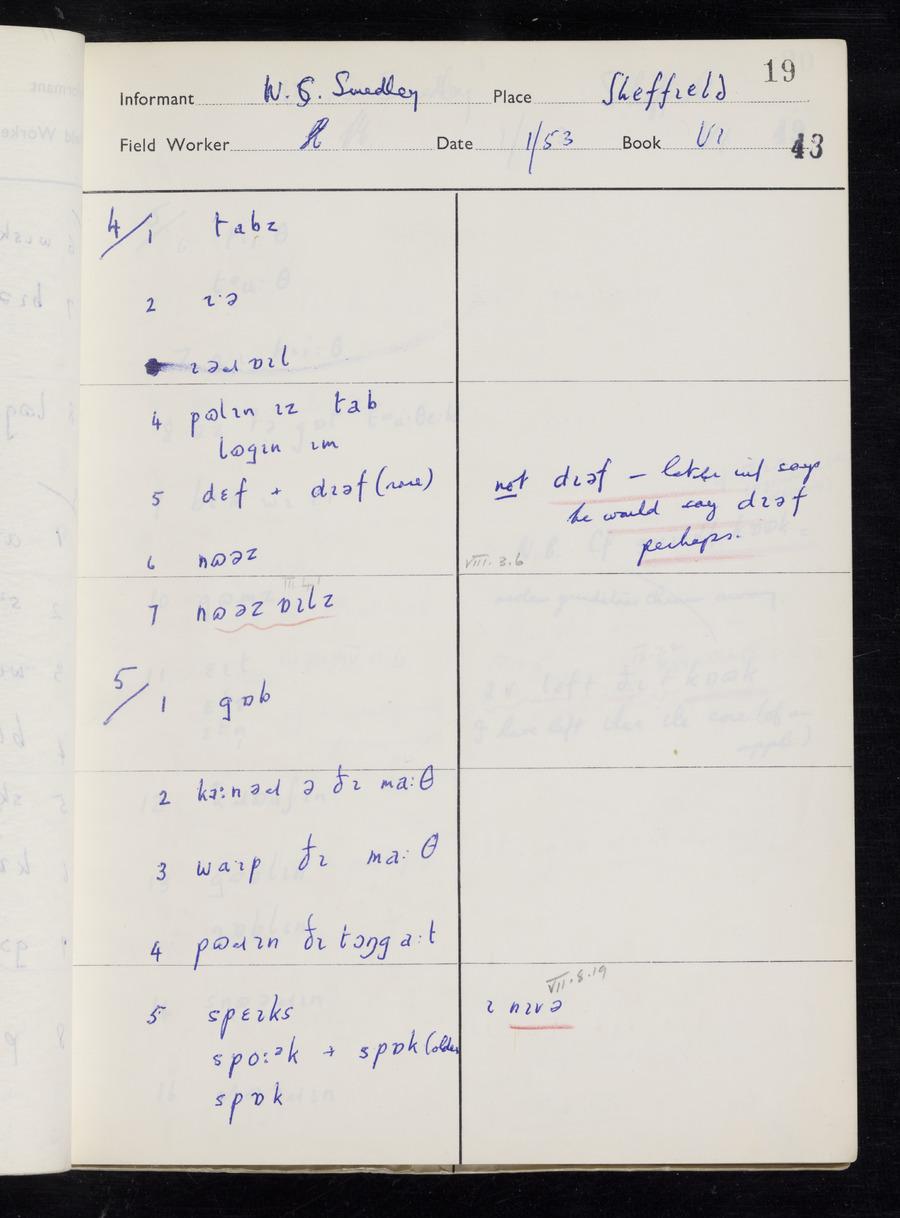 19
Informant W. G. Smedley Place Sheffield
Field Worker Date 1/53 Book VI 43
4/1 tabz
2 ɪ·ə
ɪəɹ ɒɪl
4 pɷlɪn ɪz tab
lɷgɪn ɪm
5 dɛf + dɪəf (rare)
not dɪəf – later inf says
he would say dɪəf
perhaps.
6 nɷəz
VIII.3.6
7 nɷəz ɒɪlz
5/1 gɒb
2 kɔ:nəɹ ə ðɪ ma:θ
3 waɪp ðɪ ma:θ
4 pɷɹɪn ðɪ tɔŋg a:t
VII.8.19
5 spɛɪks
ɪ nɪvə
spo:ᵊk + spɒk (older
spɒk